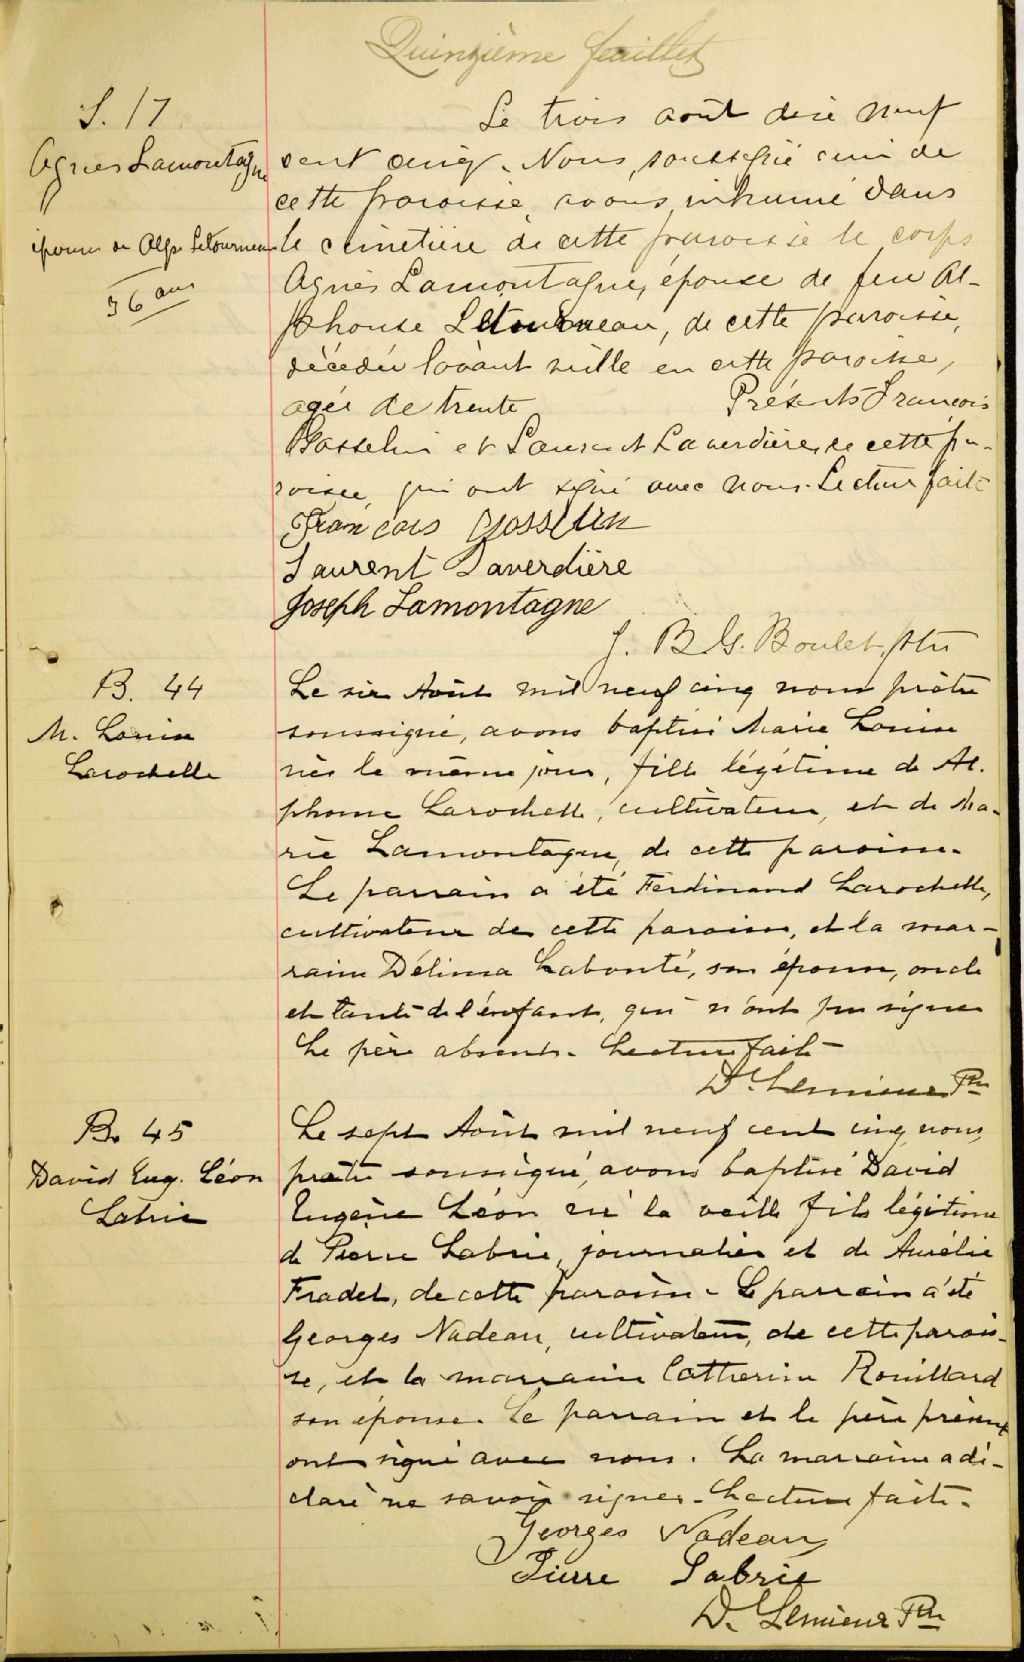 Quinzième feuillet
S. 17
Agnes Lamontagne
épouse de Alph Letourneau
36 ans
Le trois août dixe neuf
cent cinq. Nous, soussigné curé de
cette paroisse, avons inhumé dans
le cimetière de cette paroisse le corps
Agnès Lamontagne, épouse de feu Al-
phonse Letourneau, de cette paroisse,
décédée l'avant veille en cette paroisse,
agée de trente Présents François
Gosselin et Laurent Laverdière, de cette pa-
roisse, qui ont signé avec nous. Lecture faite
François Gosselin
Laurent Laverdière
Joseph Lamontagne
J. B G. Boulet, ptre
B. 44
M. Louise
Larochelle
Le six Août mil neuf cinq nous prêtre
soussigné, avons baptisé Marie Louise
née le même jour, fille légitime de Al-
phonse Larochelle, cultivateur, et de Ma-
rie Lamontagne, de cette paroisse.
Le parrain a été Ferdinand Larochelle,
cultivateur de cette paroisse, et la mar-
raine Délima Labonté, son épouse, oncle
et tante de l'enfant, qui n'ont pu signer
Le père absent. Lecture faite
D. Lemieux Ptre
B. 45
David Eug. Léon
Labrie
Le sept Août mil neuf cent cinq nous,
prêtre soussigné, avons baptisé David
Eugène Léon né la veille fils légitime
de Pierre Labrie, journalier et de Aurélie
Fradet, de cette paroisse. Le parrain a été
Georges Nadeau, cultivateur, de cette parois-
se, et la marraine Catherine Rouillard
son épouse. Le parrain et le père présent
ont signé avec nous. La marraine a dé-
claré ne savoir signer. Lecture faite.
Georges Nadeau
Pierre Labrie
D. Lemieux Ptre